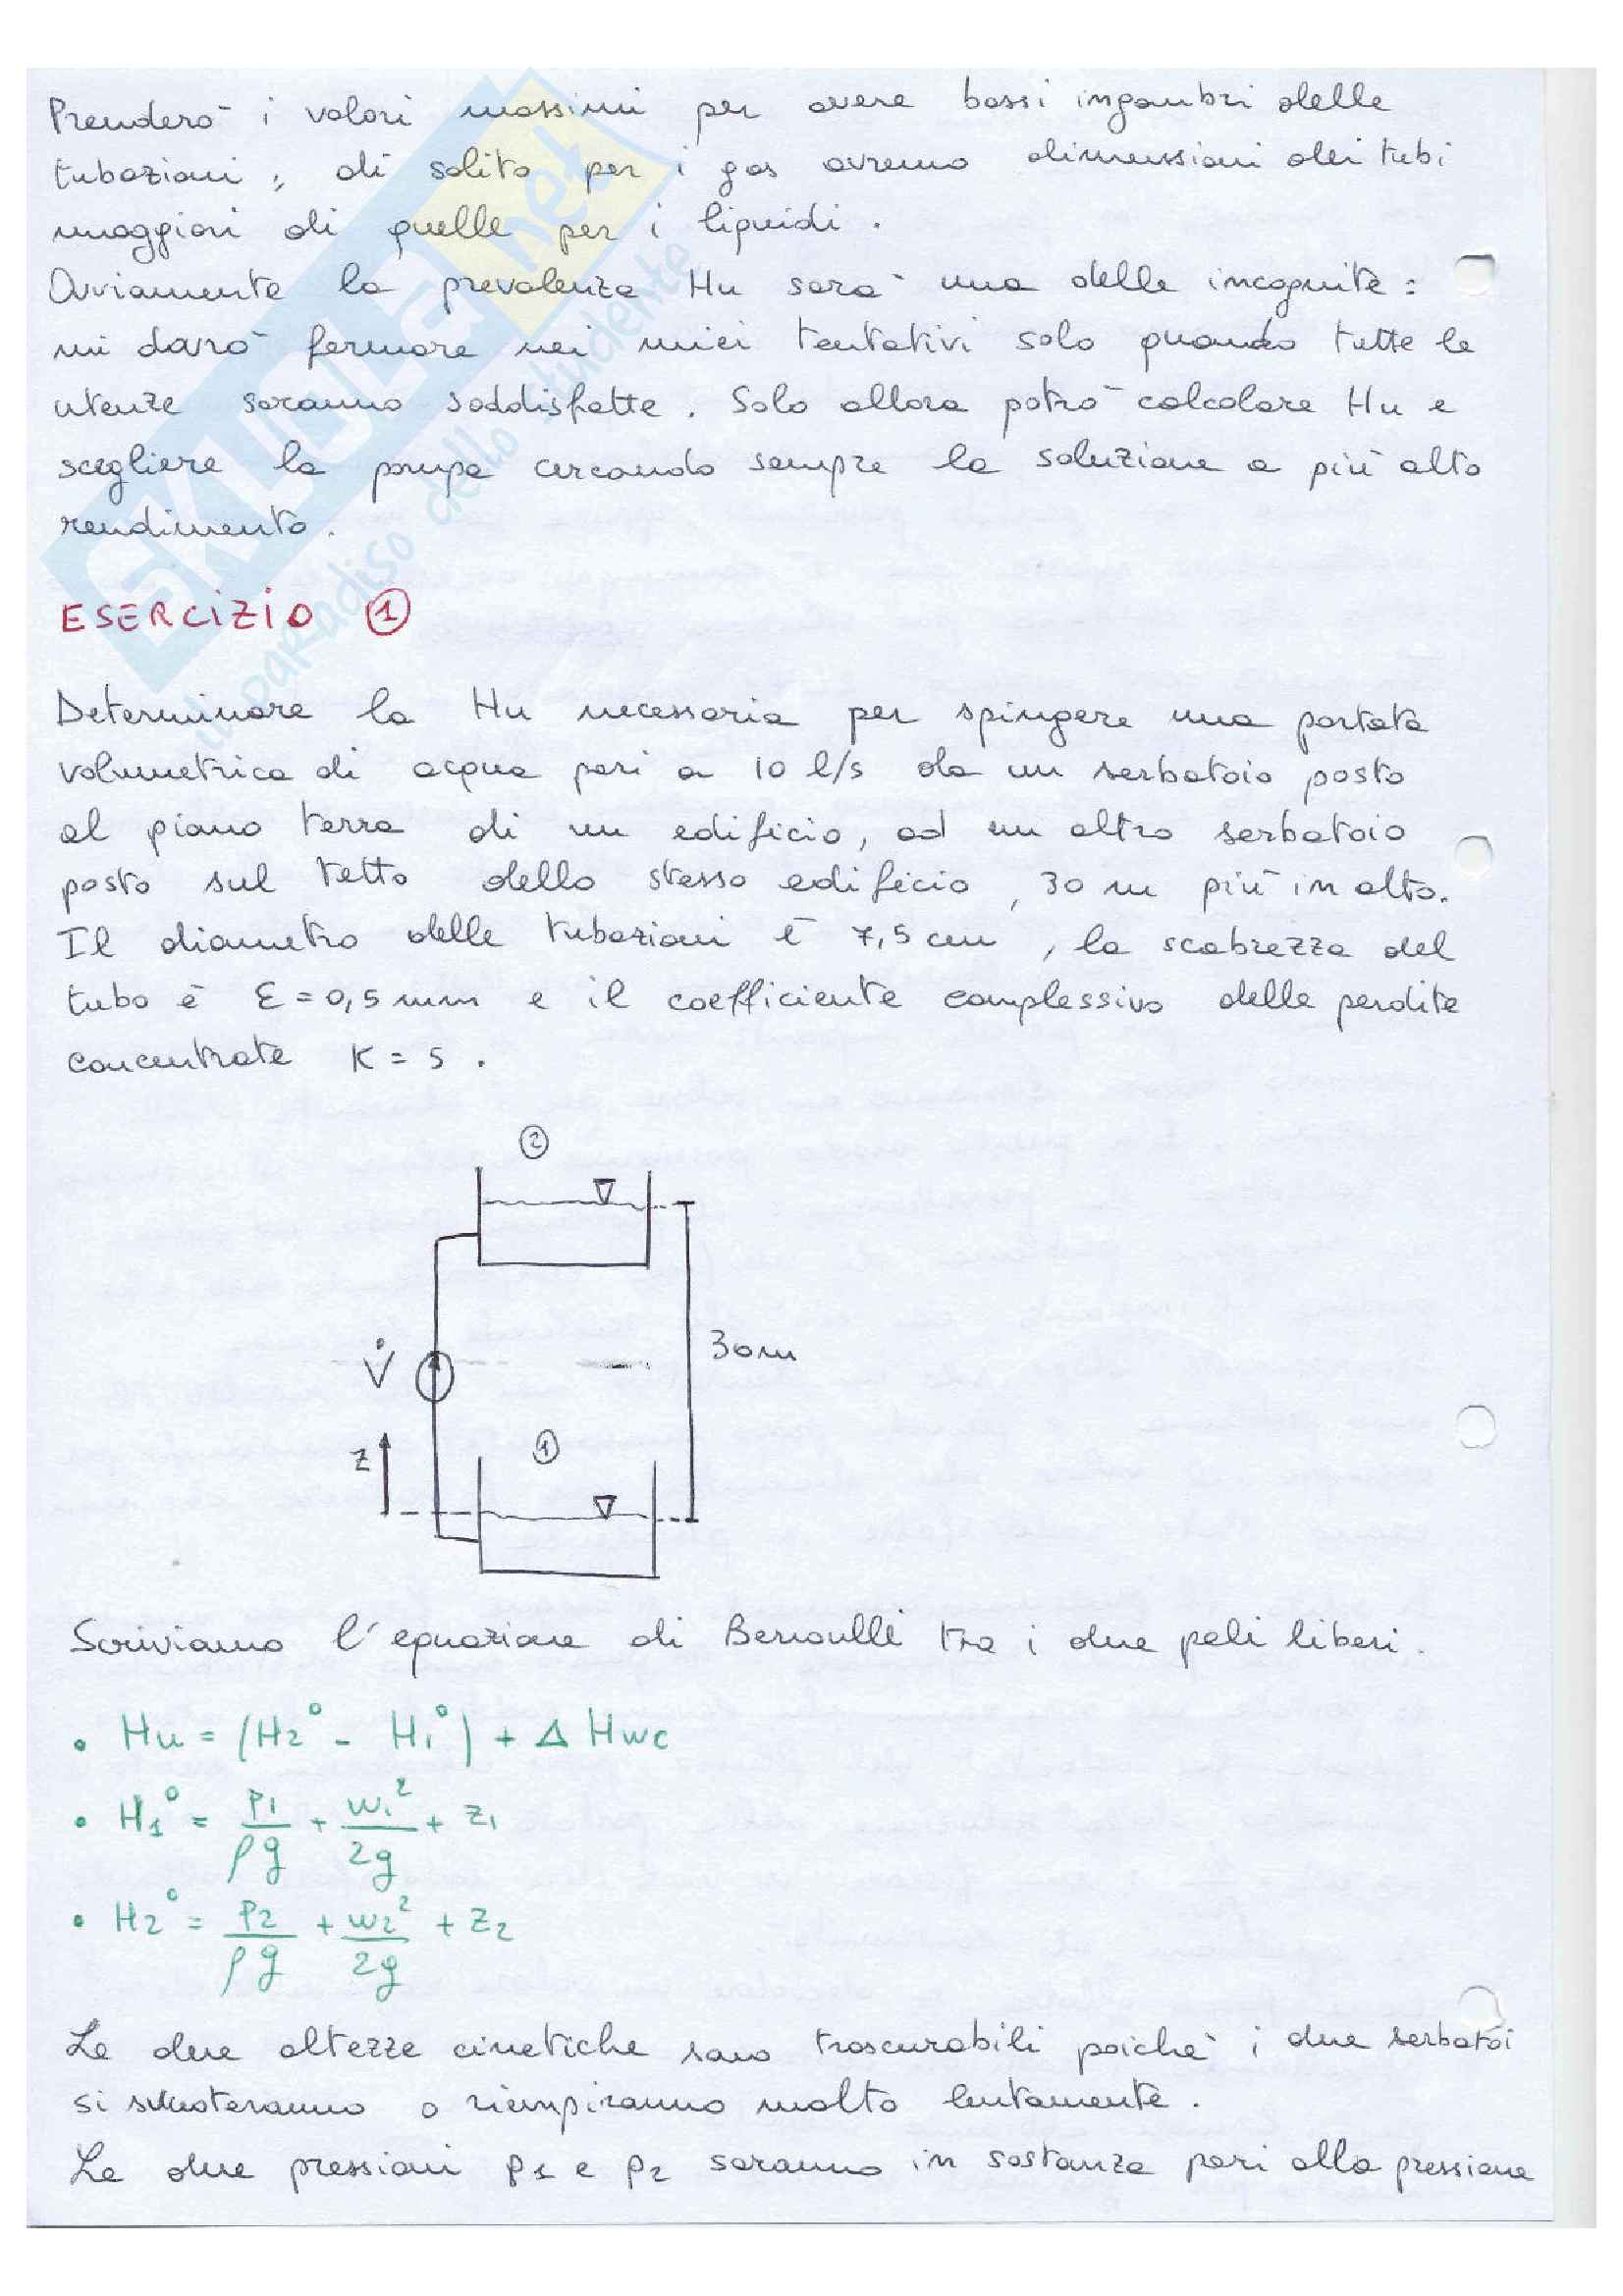 Prenderò i valori massimi per avere bassi ingombri delle
tubazioni, di solito per i gas avremo dimensioni dei tubi
maggiori di quelle per i liquidi.
Ovviamente la prevalenza Hu sarà una delle incognite:
mi dovrò fermare nei miei tentativi solo quando tutte le
utenze saranno soddisfatte. Solo allora potrò calcolare Hu e
scegliere la pompa cercando sempre la soluzione a più alto
rendimento.
SKUOLA.net
il paradiso dello studente
ESERCIZIO ①
Determinare la Hu necessaria per spingere una portata
volumetrica di acqua pari a 10 l/s da un serbatoio posto
al piano terra di un edificio, ad un altro serbatoio
posto sul tetto dello stesso edificio, 30 m più in alto.
Il diametro delle tubazioni è 7,5 cm, la scabrezza del
tubo è ε = 0,5 mm e il coefficiente complessivo delle perdite
concentrate K = 5.
②
30m
V̇
z
①
Scriviamo l'equazione di Bernoulli tra i due peli liberi.
• Hu = (H2° - H1°) + Δ Hwc
• H1° = p1/ρg + w1²/2g + z1
• H2° = p2/ρg + w2²/2g + z2
Le due altezze cinetiche sono trascurabili poichè i due serbatoi
si svuoteranno o riempiranno molto lentamente.
Le due pressioni p1 e p2 saranno in sostanza pari alla pressione